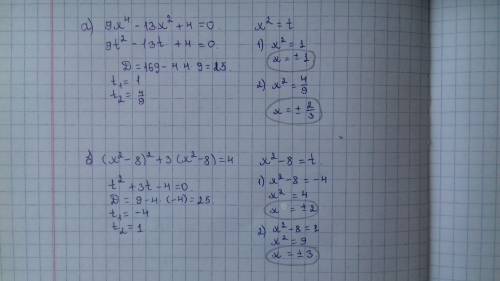 а) 9x⁴ - 13x² + 4 = 0
9t² - 13t + 4 = 0
D = 169 - 4·4·9 = 25
t₁ = 1
t₂ = 4/9
x² = t
1) x² = 1
x = ± 1
2) x² = 4/9
x = ± 2/3
б) (x² - 8)² + 3(x² - 8) = 4
t² + 3t - 4 = 0
D = 9 - 4·(-4) = 25
t₁ = -4
t₂ = 1
x² - 8 = t
1) x² - 8 = -4
x² = 4
x = ± 2
2) x² - 8 = 1
x² = 9
x = ± 3